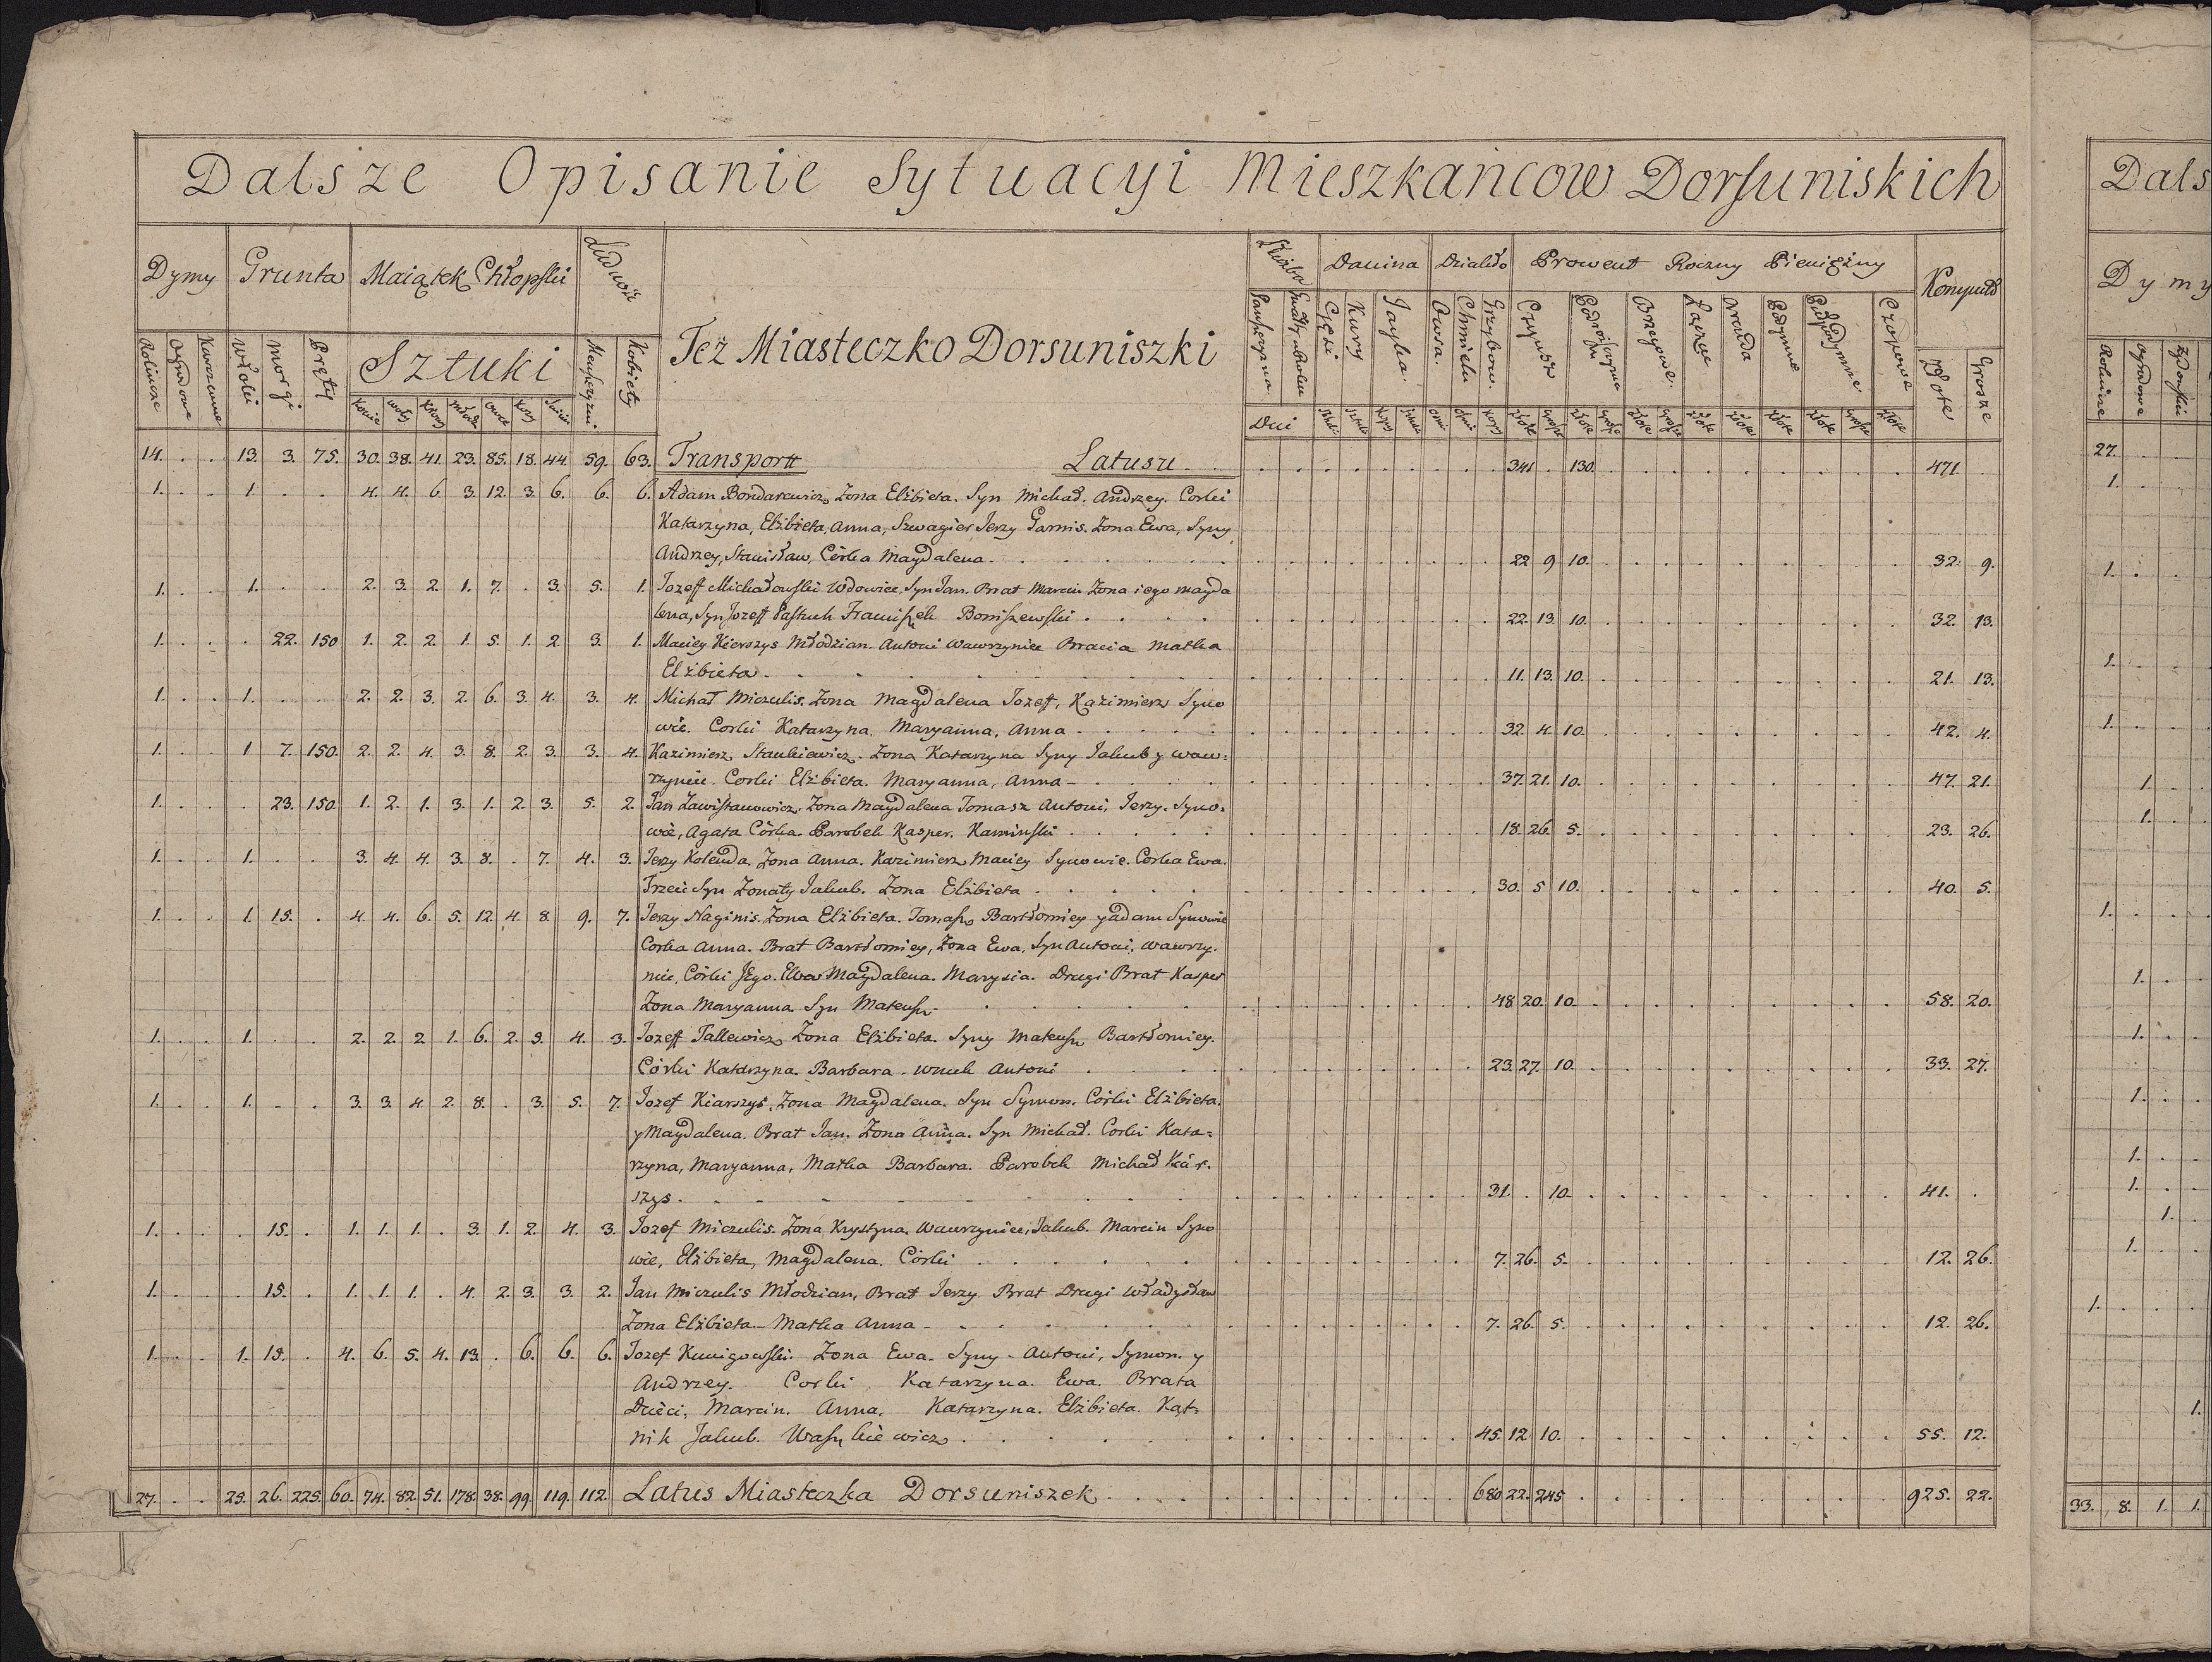 Dalsze Opisanie Sytuacyi Mieszkancow Dorsuniskich
Dymy Grunta Maiątek Chłopski Ludność Też Miasteczko Dorsuniszki Służba Danina Działło Prowent Roczny Pieniężny Komput
Rolnicze Ogrodowe Karczemne Włoki Morgi Pręty Sztuki Menszczyzni Kobiety Gęsi Kury Jayka Owsa Chmielu Grzybow Czynsz Brzegowe Łączne Arenda Podymne Czopowe Złote Grosze
Konie woły Krowy owce Kozy Świnie Dni
14. . . 13. 3. 75. 30. 38. 41. 23. 85. 18. 44. 59. 63. Transportt Latusu 341 . 130. 471.
1. . . 1. . . 4. 4. 6. 3. 12. 3. 6. 6. 6. Adam Bondarewicz, Zona Elżbieta. Syn Michał. Andrzey. Corki
Katarzyna, Elżbieta, Anna, Szwagier Jerzy Garnis. Zona Ewa, Syny
Andrzey, Stanisław, Córka Magdalena. 22 9 10. 32. 9.
1. . . 1. . . 2. 3. 2. 1. 7. . 3. 5. 1. Jozeff Michałowski Wdowiec, Syn Jan. Brat Marcin Zona iego Magda
lena, Syn Jozeff Pastuch Franciszek Boniszewski. 22. 13. 10. 32. 13.
1. . . . 22. 150 1. 2. 2. 1. 5. 1. 2. 3. 1. Maciey Kierszys Młodzian. Antoni Wawrzyniec Bracia Matka
Elżbieta. 11. 13. 10. 21. 13.
1. . . 1. . . 2. 2. 3. 2. 6. 3. 4. 3. 4. Michał Miczulis. Zona Magdalena Jozeff, Kazimierz Syno
wie. Corki Katarzyna. Maryanna, Anna. 32. 4. 10. 42. 4.
1. . . 1 7. 150. 2. 2. 4. 3. 8. 2. 3. 3. 4. Kazimierz Stankiewicz. Zona Katarzyna Syny Jakub y Waw:
rzyniec. Corki Elżbieta. Maryanna, Anna 37. 21. 10. 47. 21.
1. . . . 23. 150. 1. 2. 1. 3. 1. 2. 3. 5. 2. Jan Zawistanowicz, Zona Magdalena Tomasz Antoni, Jerzy. Syno:
wie, Agata Córka. Parobek Kasper. Kaminski. 18. 26. 5. 23. 26.
1. . . 1. . . 3. 4. 4. 3. 8. . 7. 4. 3. Jerzy Kolenda. Zona Anna. Kazimierz Maciey Synowie. Corka Ewa.
Trzeci Syn Zonaty Jakub. Zona Elżbieta. 30. 5 10. 40. 5.
1. . . 1. 15. . 4. 4. 6. 5. 12. 4. 8. 9. 7. Jerzy Naginis. Zona Elżbieta. Tomasz Bartłomiey y Adam Synowie
Corka Anna. Brat Bartłomiey, Zona Ewa, Syn Antoni, Wawrzy.
niec, Córki Jego. Ewa Magdalena. Marysia. Drugi Brat Kasper
Zona Maryanna. Syn Mateusz. 48. 20. 10. 58. 20.
1. . . 1. . . 2. 2. 2. 1. 6. 2. 3. 4. 3. Jozeff Tallewicz, Zona Elżbieta. Syny Mateusz Bartłomiey.
Córki Katarzyna. Barbara. wnuk Antoni 23. 27. 10. 33. 27.
1. . . 1. . . 3. 3. 4. 2. 8. . 3. 5. 7. Jozef Kiarszys, Zona Magdalena. Syn Symon. Córki Elżbieta.
y Magdalena. Brat Jan. Zona Anna. Syn Michał. Corki Kata:
rzyna, Maryanna, Matka Barbara. Parobek Michał Kiar.
szys. 31. . 10. 41.
1. . . . 15. . 1. 1. 1. . 3. 1. 2. 4. 3. Jozef Miczulis. Zona Krystyna. Wawrzyniec, Jakub. Marcin Syno
wie, Elżbieta, Magdalena. Córki 7. 26. 5. 12. 26.
1. . . . 15. . 1. 1. 1. . 4. 2. 3. 3. 2. Jan Miczulis Młodzian, Brat Jerzy Brat Drugi Władysław
Zona Elżbieta. Matka Anna 7. 26. 5. 12. 26.
1. . . 1. 15. . 4. 6. 5. 4. 13. . 6. 6. 6. Jozef Kunigowski. Zona Ewa. Syny Antoni, Symon. y
Andrzey. Corki, Katarzyna. Ewa. Brata
Dzieci, Marcin. Anna. Katarzyna. Elżbieta. Kąt:
nik Jakub. 45. 12. 10. 55. 12.
27. . . 23. 26. 225. 60. 74. 82. 51. 178. 38. 99. 119. 112. Latus Miasteczka Dorsuniszek. 680. 22. 245. 925. 22.
Dals
Dymy
Rolnicze Ogrodowe
27.
1.
1.
1.
1.
1.
1.
1.
1.
1.
1.
1.
1.
1.
1.
1.
1.
33. 8. 1. 1.